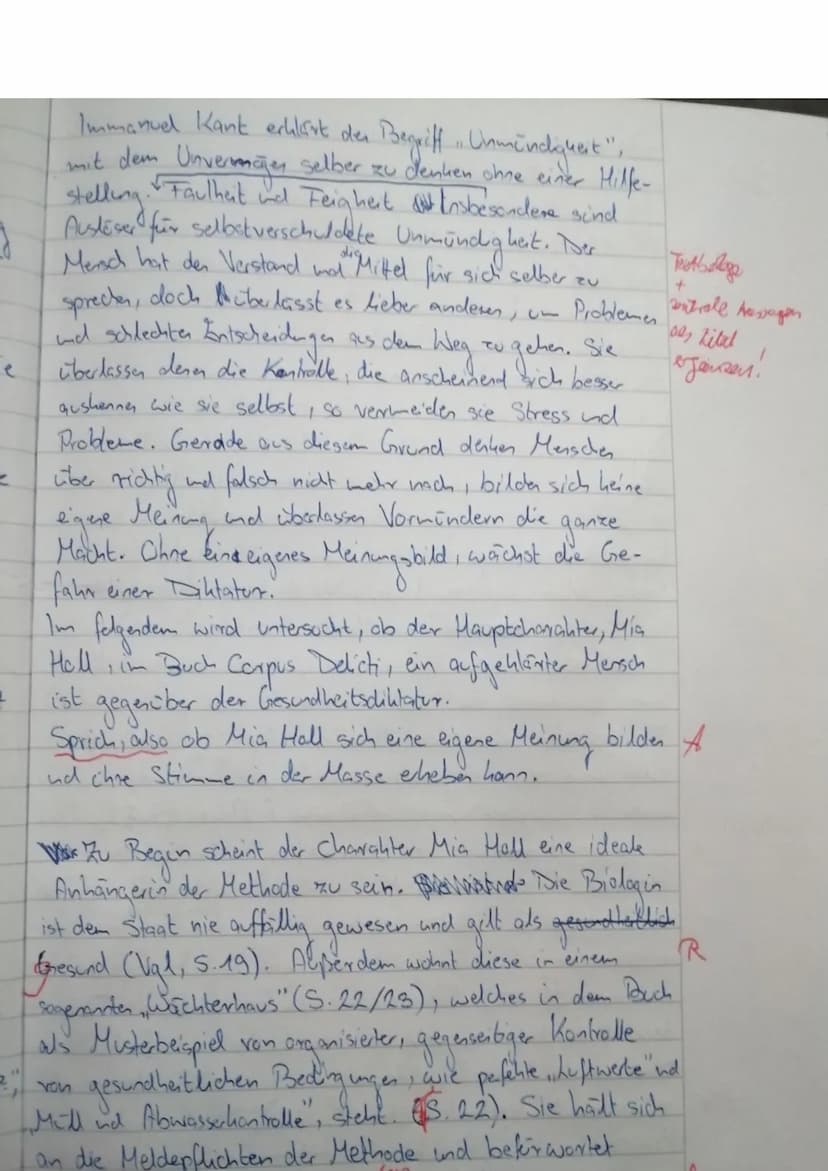 Immanuel Kant erklärt den Begriff „Unmündigkeit",
mit dem Unvermögen selber zu denken ohne einer Hilfe-
stellung. Faulheit und Feigheit Insbesondere sind
Auslöser für selbstverschuldete Unmündigkeit. Der
Mensch hat den Verstand und die Mittel für sich selber zu
sprechen, doch überlässt es lieber anderen, um Problemen
und schlechten Entscheidungen aus dem Weg zu gehen. Sie
überlassen denen die Kontrolle, die anscheinend sich besser
auskennen wie sie selbst, so vermeiden sie Stress und
Probleme. Gerade aus diesem Grund denken Menschen
über richtig und falsch nicht mehr nach, bilden sich keine
eigene Meinung und überlassen Vormündern die ganze
Macht. Ohne eigenes Meinungsbild, wächst die Ge-
fahr einer Diktatur.
Im folgendem wird untersucht, ob der Hauptcharakter, Mia
Holl, im Buch Corpus Delicti, ein aufgeklärter Mensch
ist gegenüber der Gesundheitsdiktatur.
Sprich, also ob Mia Holl sich eine eigene Meinung bilden
und ihre Stimme in der Masse erheben kann.
Zu Begin scheint der Charakter Mia Holl eine ideale
Anhängerin der Methode zu sein. Die Biologin
ist dem Staat nie auffällig gewesen und gilt als gesundheitlich
Gesund (Vgl, S.19). Außerdem wohnt diese in einem
sogenannten „Wächterhaus" (S.22/23), welches in dem Buch
als Musterbeispiel von organisierter, gegenseitiger Kontrolle
von gesundheitlichen Bedingungen, wie perfekte „Luftwerte" und
„Müll und Abwasserkontrolle", steht. (S.22). Sie hält sich
an die Meldepflichten der Methode und befürwortet
Textbelege
+
zentrale Aussagen
als Zitat
ergänzen!
A
R